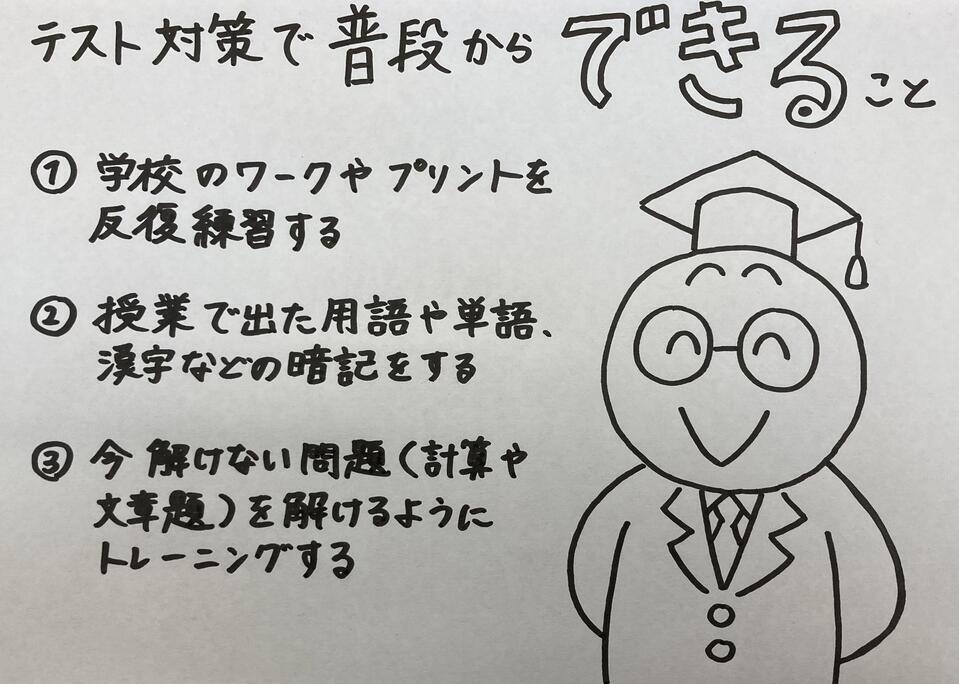 テスト対策で普段からできること
① 学校のワークやプリントを
反復練習する
② 授業で出た用語や単語、
漢字などの暗記をする
③ 今解けない問題(計算や
文章題)を解けるように
トレーニングする